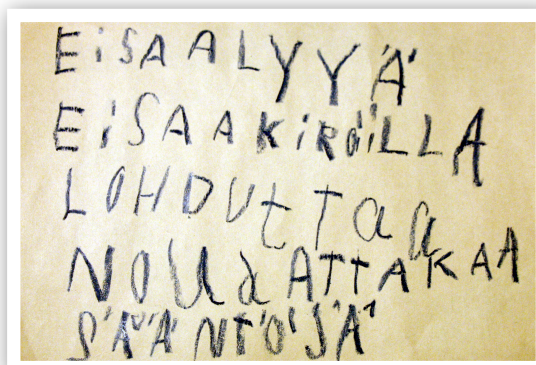 EiSAALYYÄ
EiSAAKiRöiLLA
LOHDUttaa
NOUdATtAKAA
SÄÄNtÖJÄ